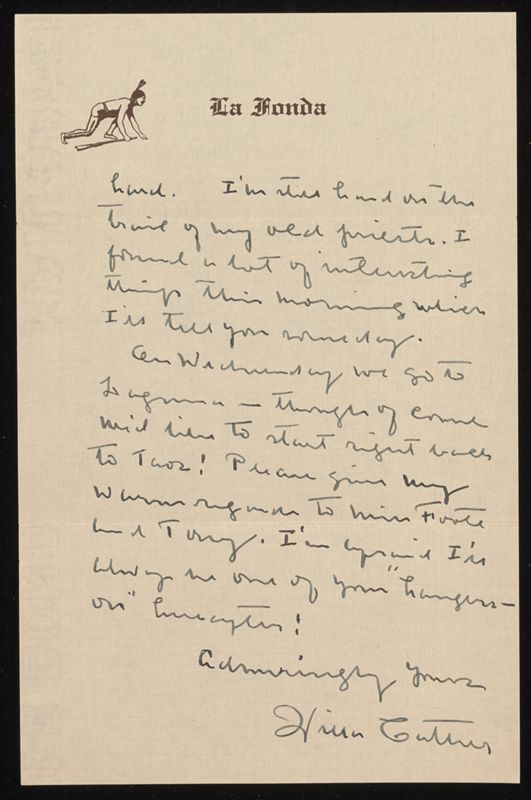 La Fonda
hard. I'm still hard on the
trail of my old priests. I
found a lot of interesting
things this morning which
I'll tell you someday.
On Wednesday we go to
Laguna — though of course
we'd like to start right back
to Taos! Please give my
warm regards to Miss Foote
and Tony. I'm afraid I'll
always be one of your "hangers-
on" hereafter!
Admiringly yours
Willa Cather